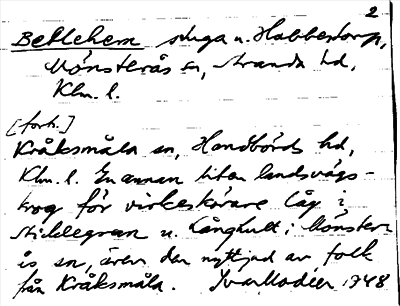 2
Betlehem stuga u. Habbestorp,
Mönsterås sn, Stranda hd,
Klm. l.
[forts.]
Kråksmåla sn, Handbörds hd,
Klm. l. En annan liten landsvägs-
krog för virkeskörare låg i
u. Långhult i Mönster-
ås sn, även den nyttjad av folk
från Kråksmåla. Ivar Modéer 1948